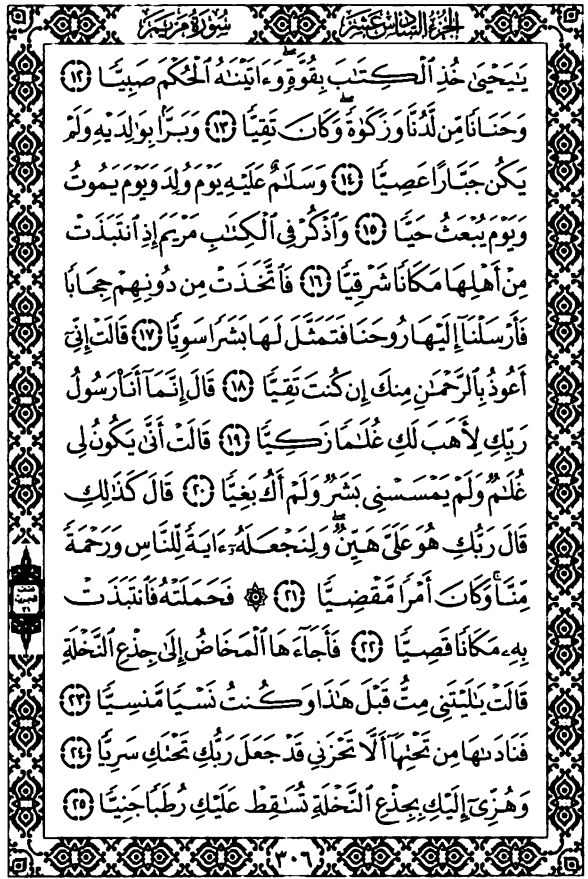 سُورَةُ مَرْيَم
الجُزْءُ السَّادِسَ عَشَرَ
يَـٰيَحْيَىٰ خُذِ ٱلْكِتَـٰبَ بِقُوَّةٍۖ وَءَاتَيْنَـٰهُ ٱلْحُكْمَ صَبِيًّا ١٢
وَحَنَانًا مِّن لَّدُنَّا وَزَكَوٰةًۖ وَكَانَ تَقِيًّا ١٣ وَبَرًّۢا بِوَٰلِدَيْهِ وَلَمْ
يَكُن جَبَّارًا عَصِيًّا ١٤ وَسَلَـٰمٌ عَلَيْهِ يَوْمَ وُلِدَ وَيَوْمَ يَمُوتُ
وَيَوْمَ يُبْعَثُ حَيًّا ١٥ وَٱذْكُرْ فِى ٱلْكِتَـٰبِ مَرْيَمَ إِذِ ٱنتَبَذَتْ
مِنْ أَهْلِهَا مَكَانًا شَرْقِيًّا ١٦ فَٱتَّخَذَتْ مِن دُونِهِمْ حِجَابًا
فَأَرْسَلْنَآ إِلَيْهَا رُوحَنَا فَتَمَثَّلَ لَهَا بَشَرًا سَوِيًّا ١٧ قَالَتْ إِنِّىٓ
أَعُوذُ بِٱلرَّحْمَـٰنِ مِنكَ إِن كُنتَ تَقِيًّا ١٨ قَالَ إِنَّمَآ أَنَا۠ رَسُولُ
رَبِّكِ لِأَهَبَ لَكِ غُلَـٰمًا زَكِيًّا ١٩ قَالَتْ أَنَّىٰ يَكُونُ لِى
غُلَـٰمٌ وَلَمْ يَمْسَسْنِى بَشَرٌ وَلَمْ أَكُ بَغِيًّا ٢٠ قَالَ كَذَٰلِكِ
قَالَ رَبُّكِ هُوَ عَلَىَّ هَيِّنٌۖ وَلِنَجْعَلَهُۥٓ ءَايَةً لِّلنَّاسِ وَرَحْمَةً
مِّنَّاۚ وَكَانَ أَمْرًا مَّقْضِيًّا ٢١ ۞ فَحَمَلَتْهُ فَٱنتَبَذَتْ
بِهِۦ مَكَانًا قَصِيًّا ٢٢ فَأَجَآءَهَا ٱلْمَخَاضُ إِلَىٰ جِذْعِ ٱلنَّخْلَةِ
قَالَتْ يَـٰلَيْتَنِى مِتُّ قَبْلَ هَـٰذَا وَكُنتُ نَسْيًا مَّنسِيًّا ٢٣
فَنَادَىٰهَا مِن تَحْتِهَآ أَلَّا تَحْزَنِى قَدْ جَعَلَ رَبُّكِ تَحْتَكِ سَرِيًّا ٢٤
وَهُزِّىٓ إِلَيْكِ بِجِذْعِ ٱلنَّخْلَةِ تُسَـٰقِطْ عَلَيْكِ رُطَبًا جَنِيًّا ٢٥
٣٠٦